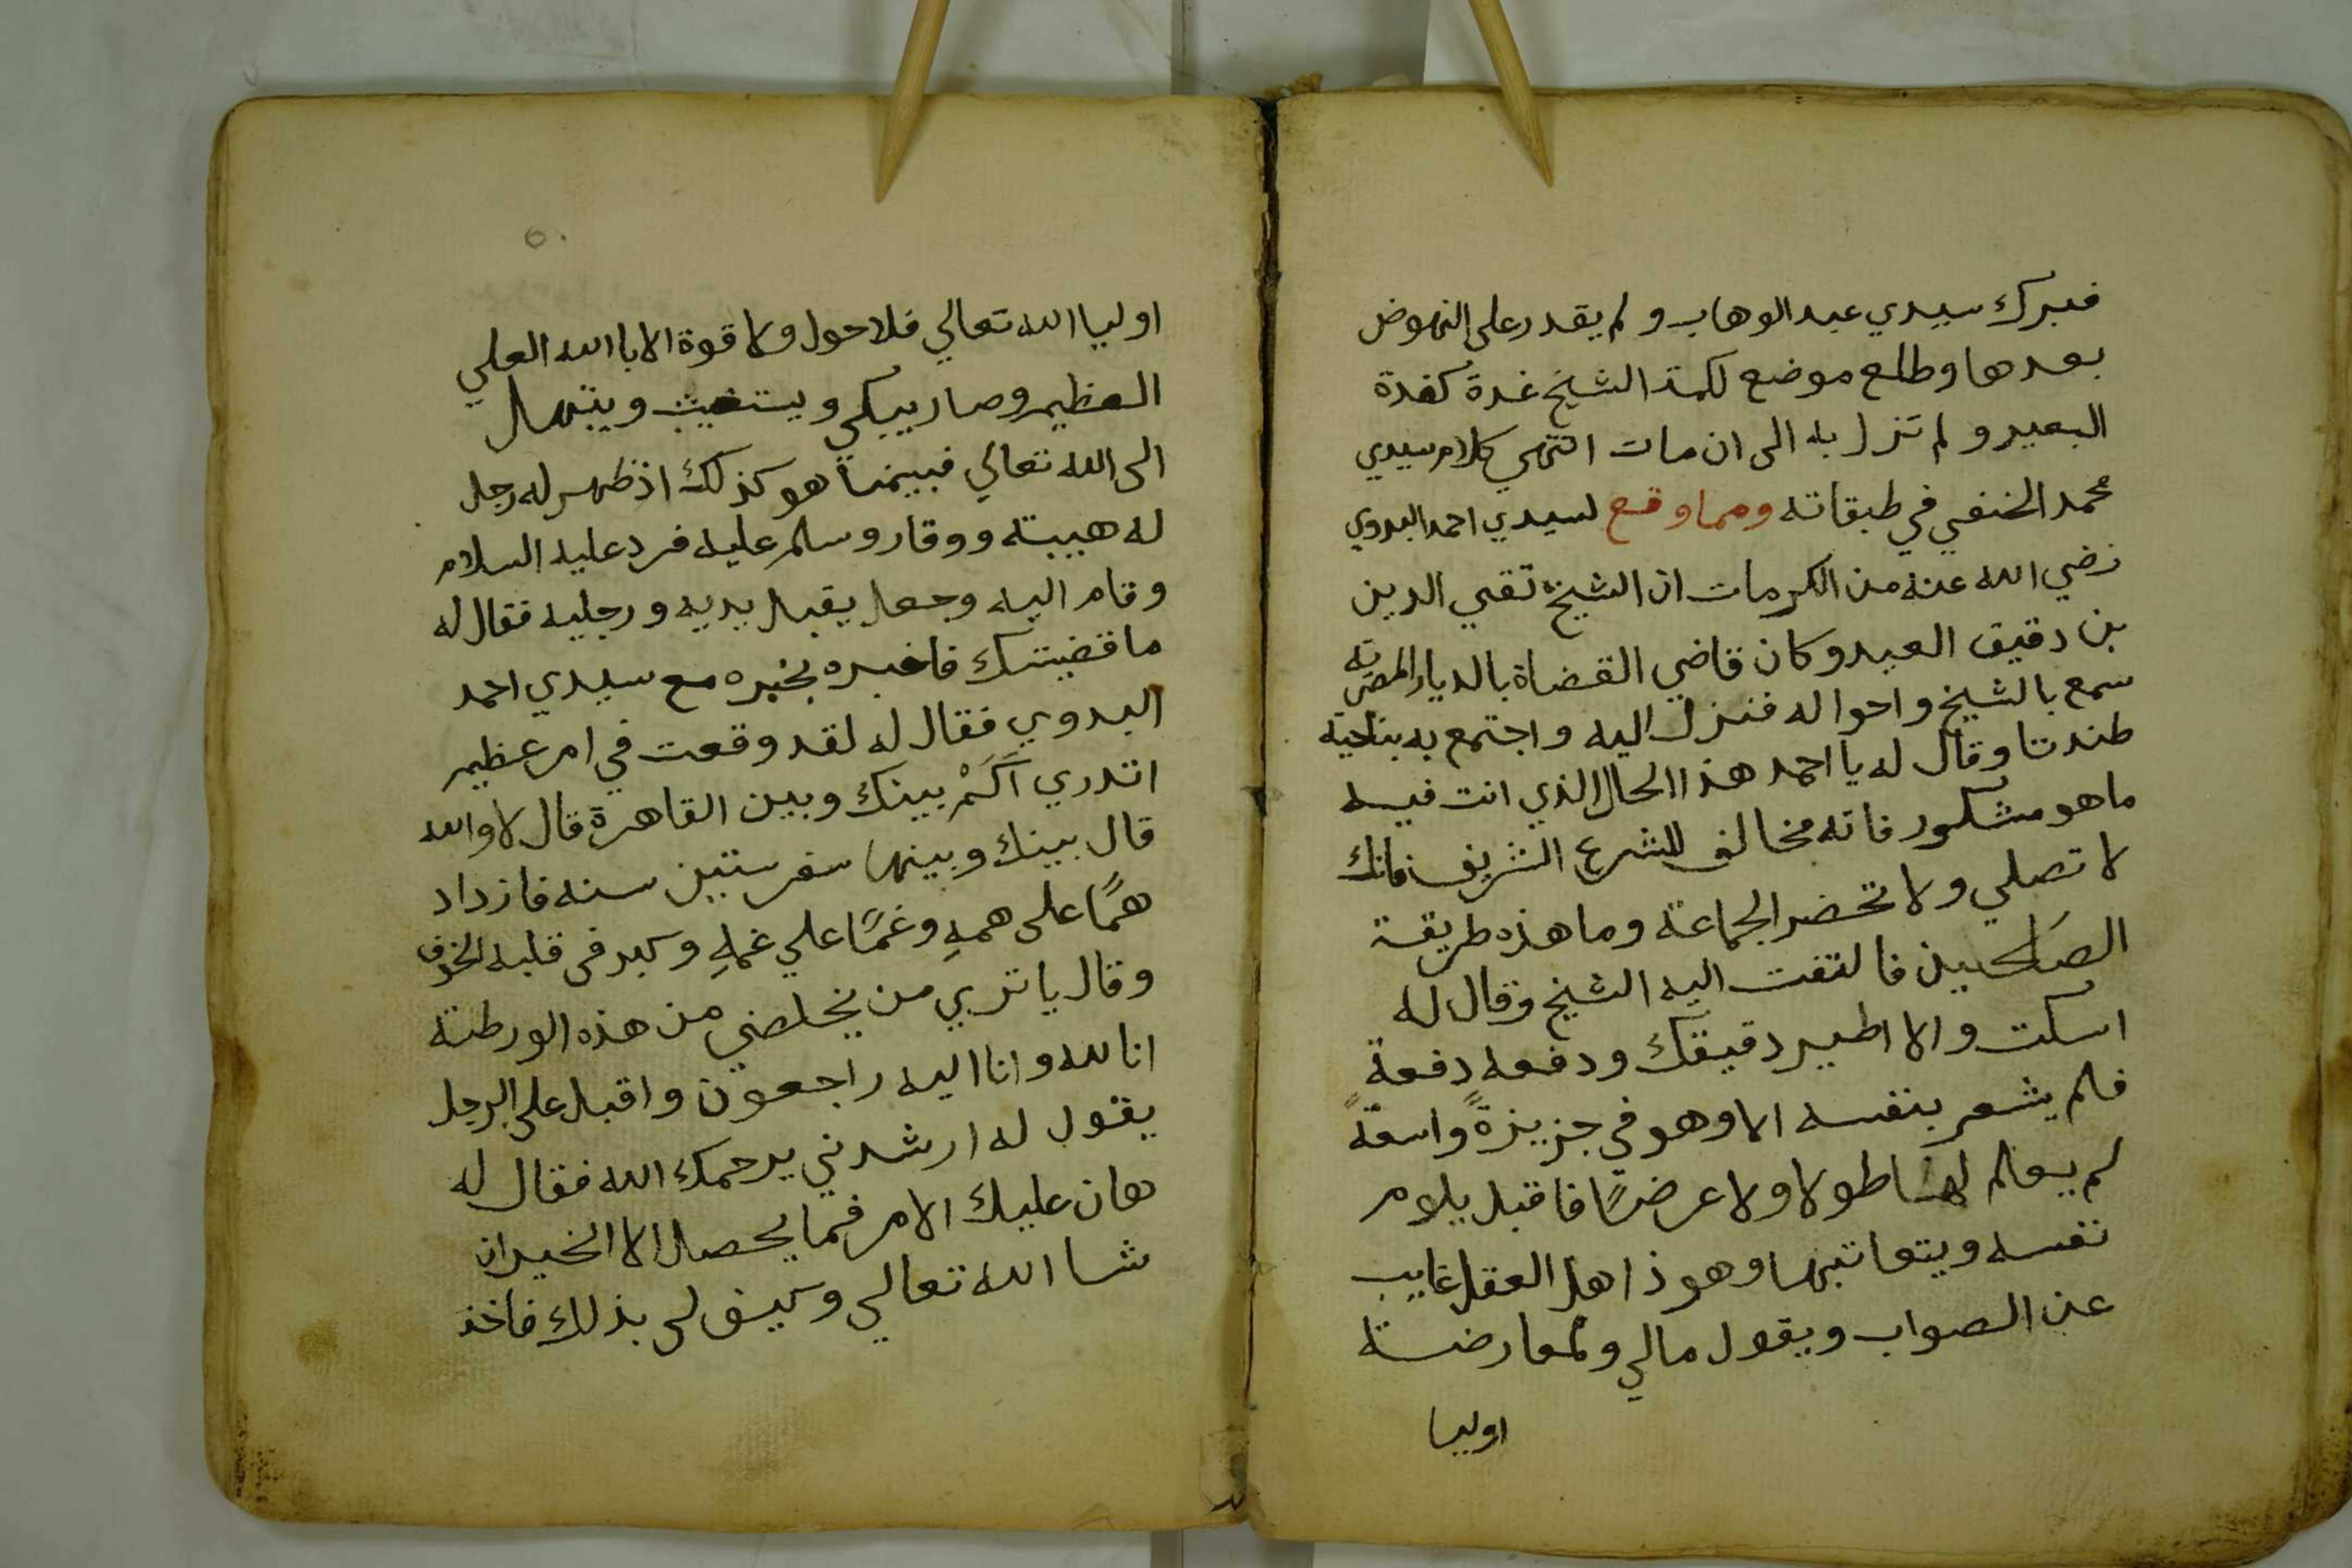 فبرك سيدي عبد الوهاب ولم يقدر على النهوض
بعدها وطلع موضع لكمة الشيخ غدة كغدة
البعير ولم تزل به الى ان مات انتهي كلام سيدي
محمد الحنفي في طبقاته ومما وقع لسيدي احمد البدوي
رضي الله عنه من الكرمات ان الشيخ تقي الدين
بن دقيق العيد وكان قاضي القضاة بالديار المصرية
سمع بالشيخ واحواله فنزل اليه واجتمع به بناحية
طندتا وقال له يا احمد هذا الحال الذي انت فيه
ما هو مشكور فانه مخالف للشرع الشريف فانك
لا تصلي ولا تحضر الجماعة وما هذه طريقة
الصالحين فالتفت اليه الشيخ وقال له
اسكت والا اطير دقيقك ودفعه دفعة
فلم يشعر بنفسه الا وهو في جزيزةً واسعةً
لم يعلم لها طولا ولا عرضًا فاقبل يلوم
نفسه ويتعاتبها وهو ذاهل العقل غايب
عن الصواب ويقول مالي ولمعارضة
اوليا
٥٠
اوليا الله تعالي فلا حول ولا قوة الا باالله العلي
العظيم وصار يبكي ويستغيث ويتبهل
الى الله تعالي فبينما هو كذلك اذ ظهر له رجل
له هيبته ووقار وسلم عليه فرد عليه السلام
وقام اليه وجعل يقبل يديه ورجليه فقال له
ما قضيتك فاخبره بخبره مع سيدي احمد
البدوي فقال له لقد وقعت في امر عظيم
اتدري اَكَمْ بينك وبين القاهرة قال لا والله
قال بينك وبينها سفر ستين سنه فازداد
همًا على همهِ وغمًا علي غمهِ وكبر في قلبه الخوف
وقال يا تري من يخلصني من هذه الورطته
انا لله وانا اليه راجعون واقبل على الرجل
يقول له ارشدني يرحمك الله فقال له
هان عليك الامر فما يحصل الا الخير ان
شا الله تعالي وكيف لي بذلك فاخذ